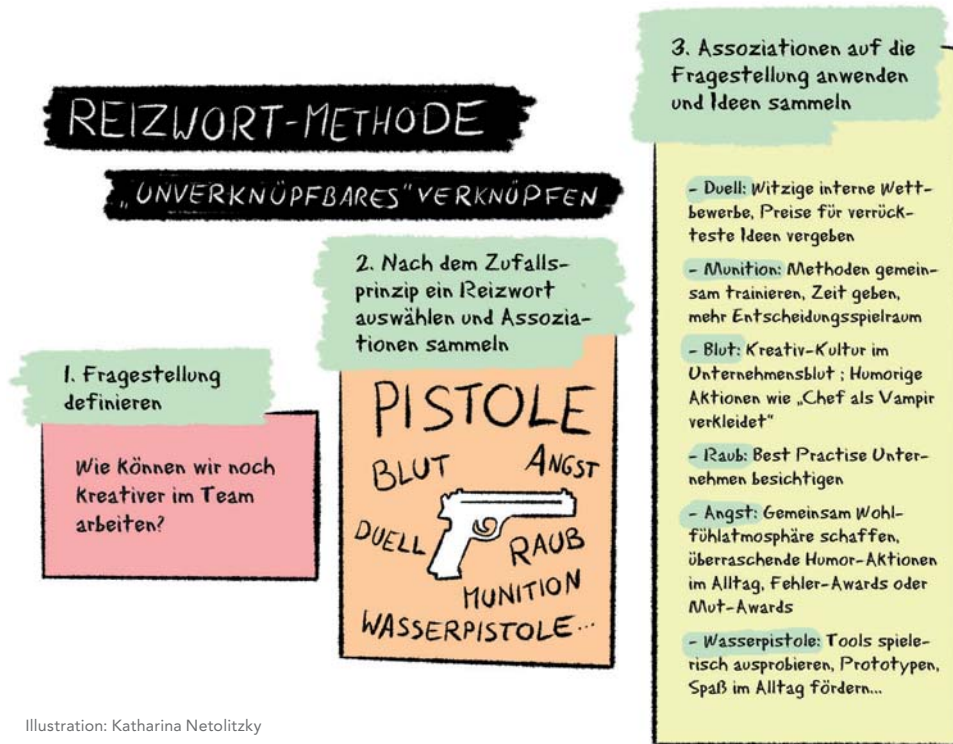 REIZWORT-METHODE
„UNVERKNÜPFBARES" VERKNÜPFEN
1. Fragestellung
definieren
Wie können wir noch
kreativer im Team
arbeiten?
2. Nach dem Zufalls-
prinzip ein Reizwort
auswählen und Assozia-
tionen sammeln
PISTOLE
BLUT
ANGST
DUELL
RAUB
MUNITION
WASSERPISTOLE...
3. Assoziationen auf die
Fragestellung anwenden
und Ideen sammeln
- Duell: Witzige interne Wett-
bewerbe, Preise für verrück-
teste Ideen vergeben
- Munition: Methoden gemein-
sam trainieren, Zeit geben,
mehr Entscheidungsspielraum
- Blut: Kreativ-Kultur im
Unternehmensblut ; Humorige
Aktionen wie „Chef als Vampir
verkleidet"
- Raub: Best Practise Unter-
nehmen besichtigen
- Angst: Gemeinsam Wohl-
fühlatmosphäre schaffen,
überraschende Humor-Aktionen
im Alltag, Fehler-Awards oder
Mut-Awards
- Wasserpistole: Tools spiele-
risch ausprobieren, Prototypen,
Spaß im Alltag fördern...
Illustration: Katharina Netolitzky